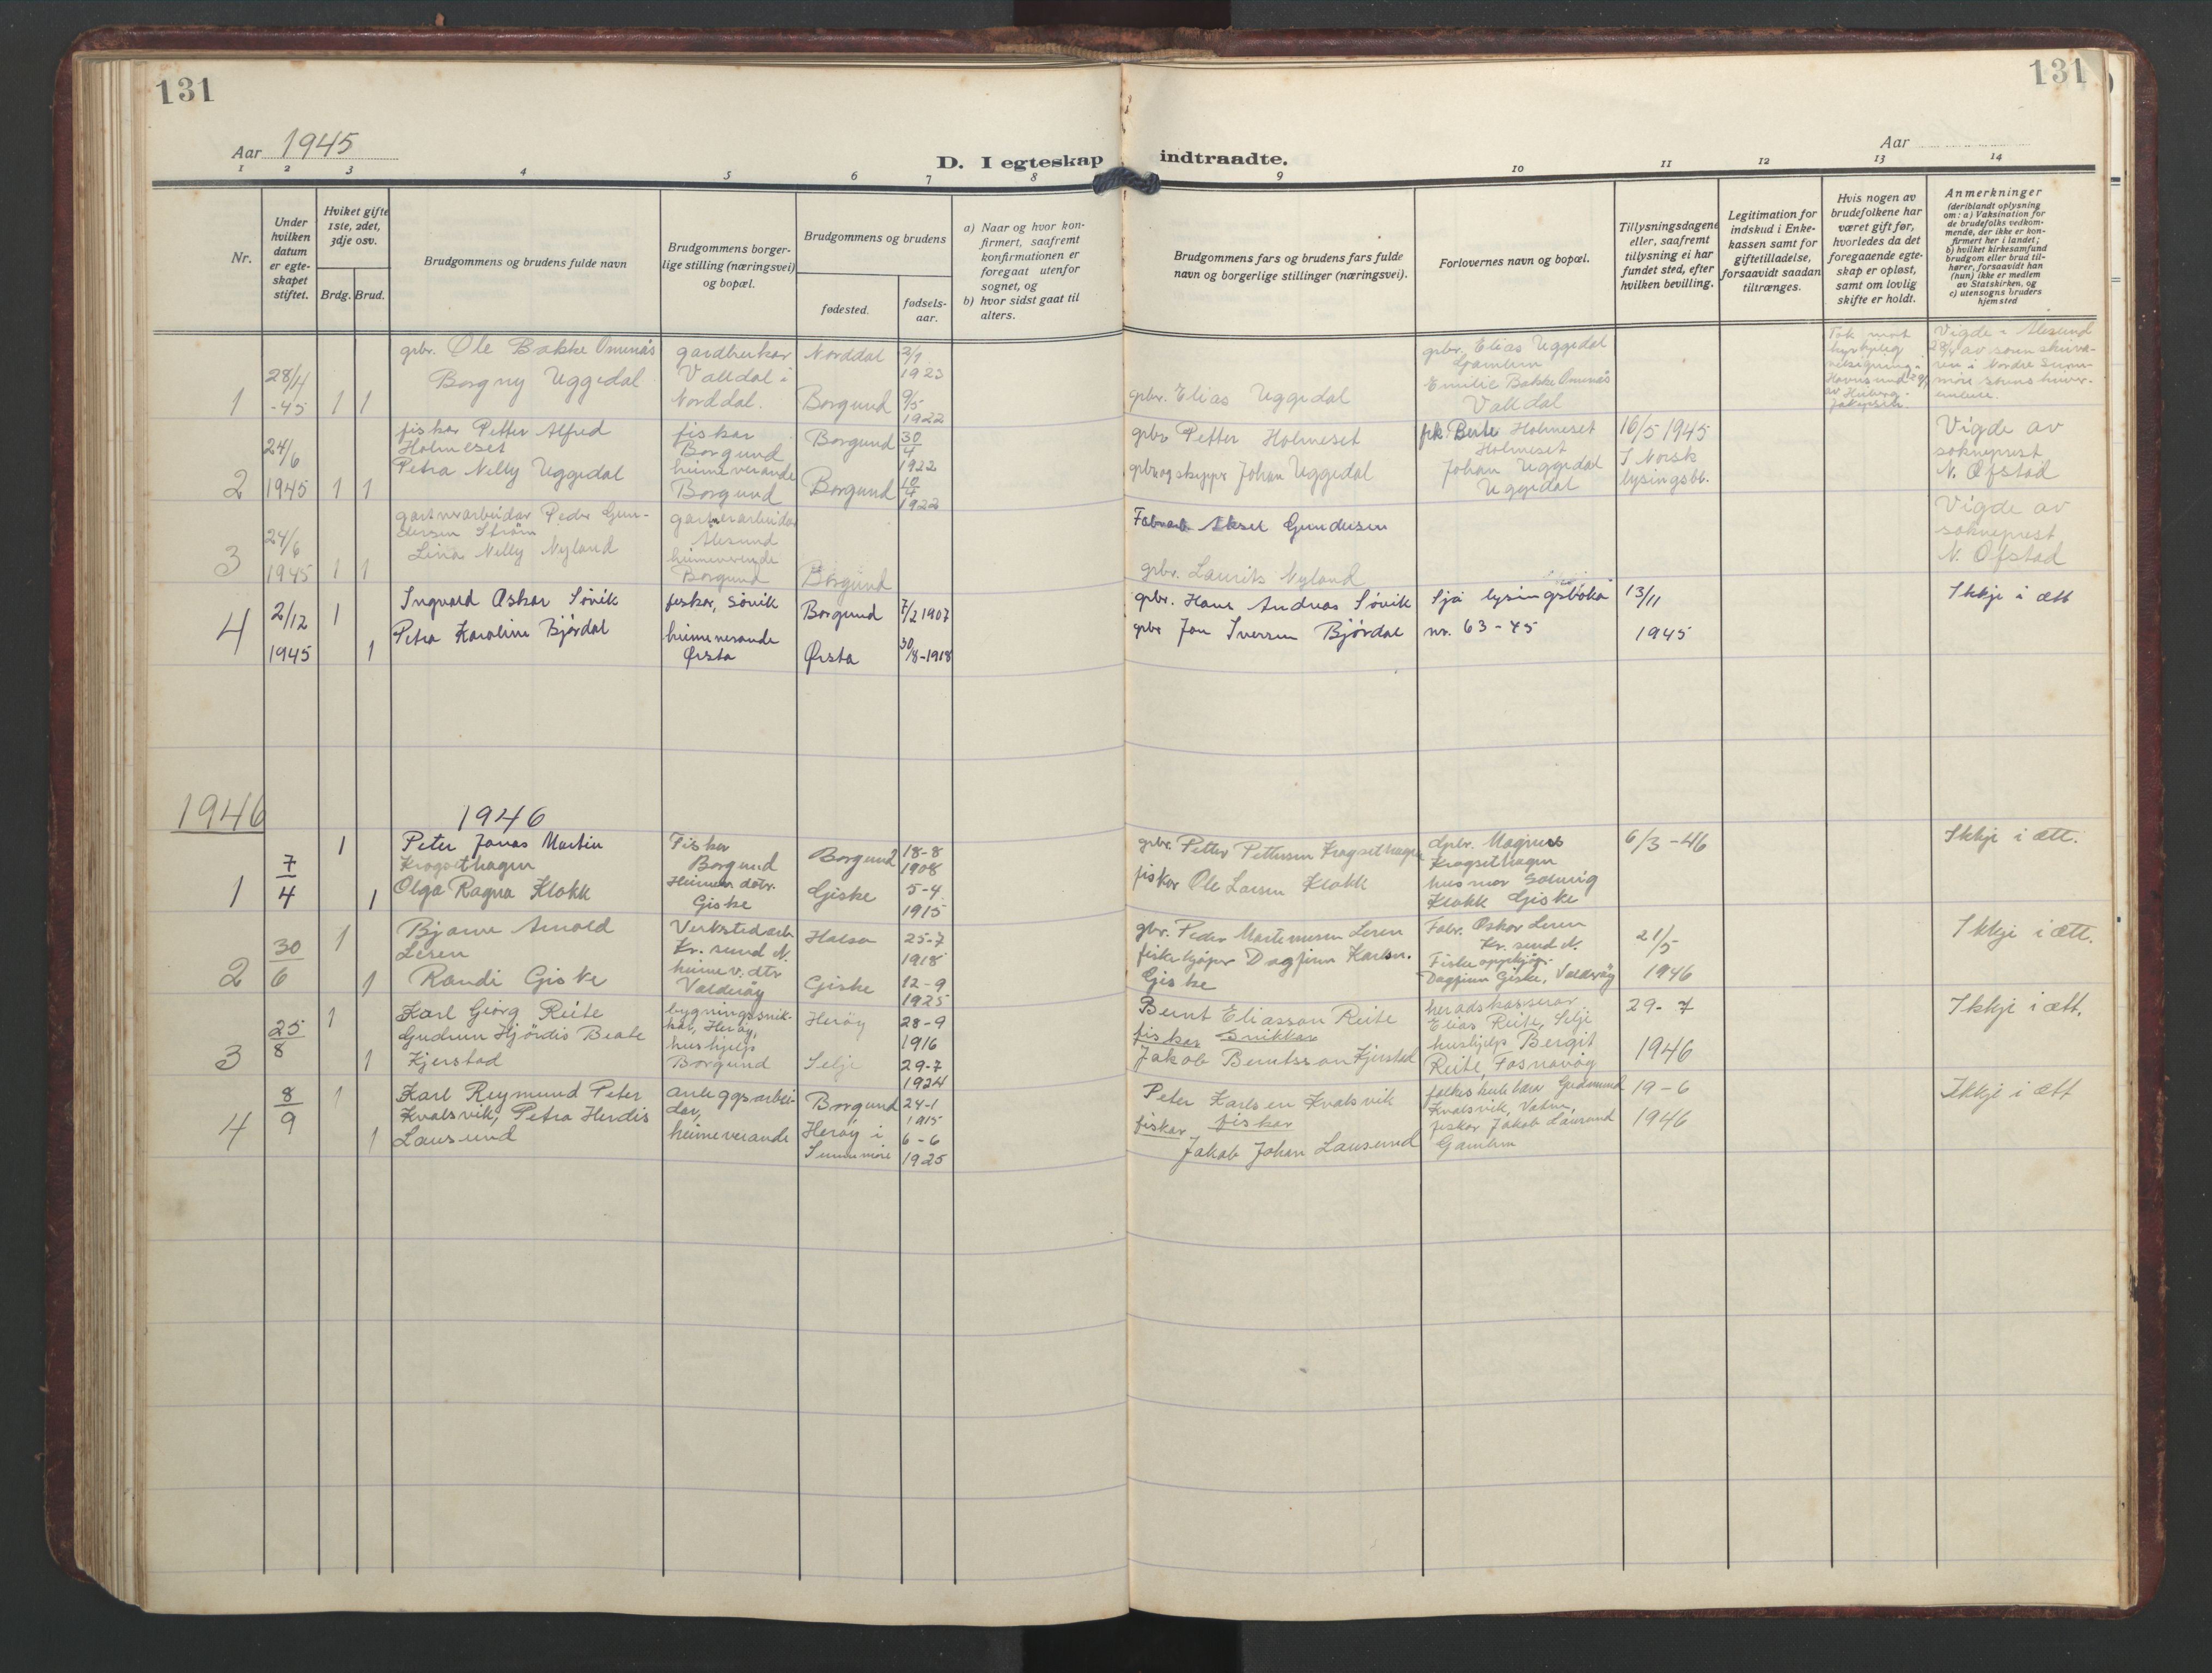 131
131
Aar 1945
Aar
D. I egteskap indtraadte.
1 2 3 4 5 6 7 8 9 10 11 12 13 14
Nr.
Under
hvilken
datum
er egte-
skapet
stiftet.
Hviket gifte
1ste, 2det,
3dje osv.
Brdg. Brud.
Brudgommens og brudens fulde navn
Brudgommens borger-
lige stilling (næringsvei)
og bopæl.
Brudgommens og brudens
fødested.
fødsels-
aar.
a) Naar og hvor kon-
firmert, saafremt
konfirmationen er
foregaat utenfor
sognet, og
b) hvor sidst gaat til
alters.
Brudgommens fars og brudens fars fulde
navn og borgerlige stillinger (næringsvei).
Forlovernes navn og bopæl.
Tillysningsdagene
eller, saafremt
tillysning ei har
fundet sted, efter
hvilken bevilling.
Legitimation for
indskud i Enke-
kassen samt for
giftetilladelse,
forsaavidt saadan
tiltrænges.
Hvis nogen av
brudefolkene har
været gift før,
hvorledes da det
foregaaende egte-
skap er opløst,
samt om lovlig
skifte er holdt.
Anmerkninger
(deriblandt oplysning
om: a) Vaksination for
de brudefolks vedkom-
mende, der ikke er kon-
firmert her i landet;
b) hvilket kirkesamfund
brudgom eller brud til-
hører, forsaavidt han
(hun) ikke er medlem
av Statskirken, og
c) utensogns bruders
hjemsted
1
28/4
-45
1 1
gbr. Ole Bakke Omenås
Borgny Uggedal
gardbrukar
Valldal i
Norddal.
Norddal
Borgund
2/1
1923
9/5
1922
gbr. Elias Uggedal
gbr. Elias Uggedal
Gamlem
Emilie Bakke Omenås
Valldal
Tok mot
kyrkjeleg
velsigning i
Vigde i Ålesund
28/4 av soren skriva-
ren i Nordre Sunn-
møre
2
24/6
1945
1 1
fiskar Petter Alfred
Holmeset
Petra Nelly Uggedal
fiskar
Borgund
heimeverande
Borgund
Borgund
Borgund
30
4
1922
10
4
1922
gbr. Petter Holmeset
gbr. og skyppr Johan Uggedal
frk. Berte Holmeset
Holmeset
Johan Uggedal
Uggedal
16/5 1945
I Norsk
lysingsbl.
Vigde av
sokneprest
N. Øfstad
3
24/6
1945
1 1
gartnerarbeidar Peder Gun-
dersen Strøm
Lina Nelly Nyland
gartnerarbeidar
Ålesund
heimeverende
Borgund
Borgund
Fabr.arb. Aksel Gundersen
gbr. Laurits Nyland
Vigde av
sokneprest
N. Øfstad
4
2/12
1945
1
1
Ingvald Oskar Søvik
Petra Karoline Bjørdal
fiskar, Søvik
heimeverande
Ørsta
Borgund
Ørsta
7/2 1907
30/8-1918
gbr. Hans Andreas Søvik
gbr Jon Iversen Bjørdal
Sjå lysingsboka
nr. 63-45
13/11
1945
Ikkje i ætt
1946
1946
1
7
4
1
1
Peter Jonas Martin
Krogsethagen
Olga Ragna Klokk
Fisker
Borgund
Heimev. dotr.
Giske
Borgund
Giske
18-8
1908
5-4
1915
gbr. Petter Pettersen Krogsethagen
fiskar Ole Larsen Klokk
Gbr. Magnus
Krogsethagen
husmor Solveig
Klokk Giske
6/3-46
Ikkje i ætt.
2
30
6
1
1
Bjarne Arnold
Leren
Randi Giske
Verkstedarb
Kr. sund N.
heimev. dtr
Valderøy
Halsa
Giske
25-7
1918
12-9
1925
gbr. Peder Martinusen Leren
fiskekjøper Dagfinn Karlsen.
Giske
Fabr. Oskar Leren
Kr. sund N.
Fiskeoppkjøp.
Dagfinn Giske, Valderøy
21/5
1946
Ikkje i ætt.
3
25
8
1
1
Karl Georg Reite
Gudrun Hjørdis Beate
Kjerstad
bygningssnik-
kar, Herøy,
hushjelp
Borgund
Herøy
Selje
28-9
1916
29-7
1924
Bernt Eliasson Reite
fiskar Snikkar
Jakob Berntsson Kjerstad
heradskasserar
Elias Reite, Selje
hushjelp Bergit
Reite, Fosnavåg
29-7
1946
Ikkje i ætt.
4
8
9
1
1
Karl Reymund Peter
Kvalsvik, Petra Herdis
Lausund
anleggsarbei-
dar,
heimeverande
Borgund
Herøy i
Sunnmøre
24-1
1915
6-6
1925
Peter Karlsen Kvalsvik
fiskar fiskar
Jakob Johan Lausund
folkeskulelærar Gudmund
Kvalsvik, Vatne,
fiskar Jakob Lausund
Gamlem
19-6
1946
Ikkje i ætt